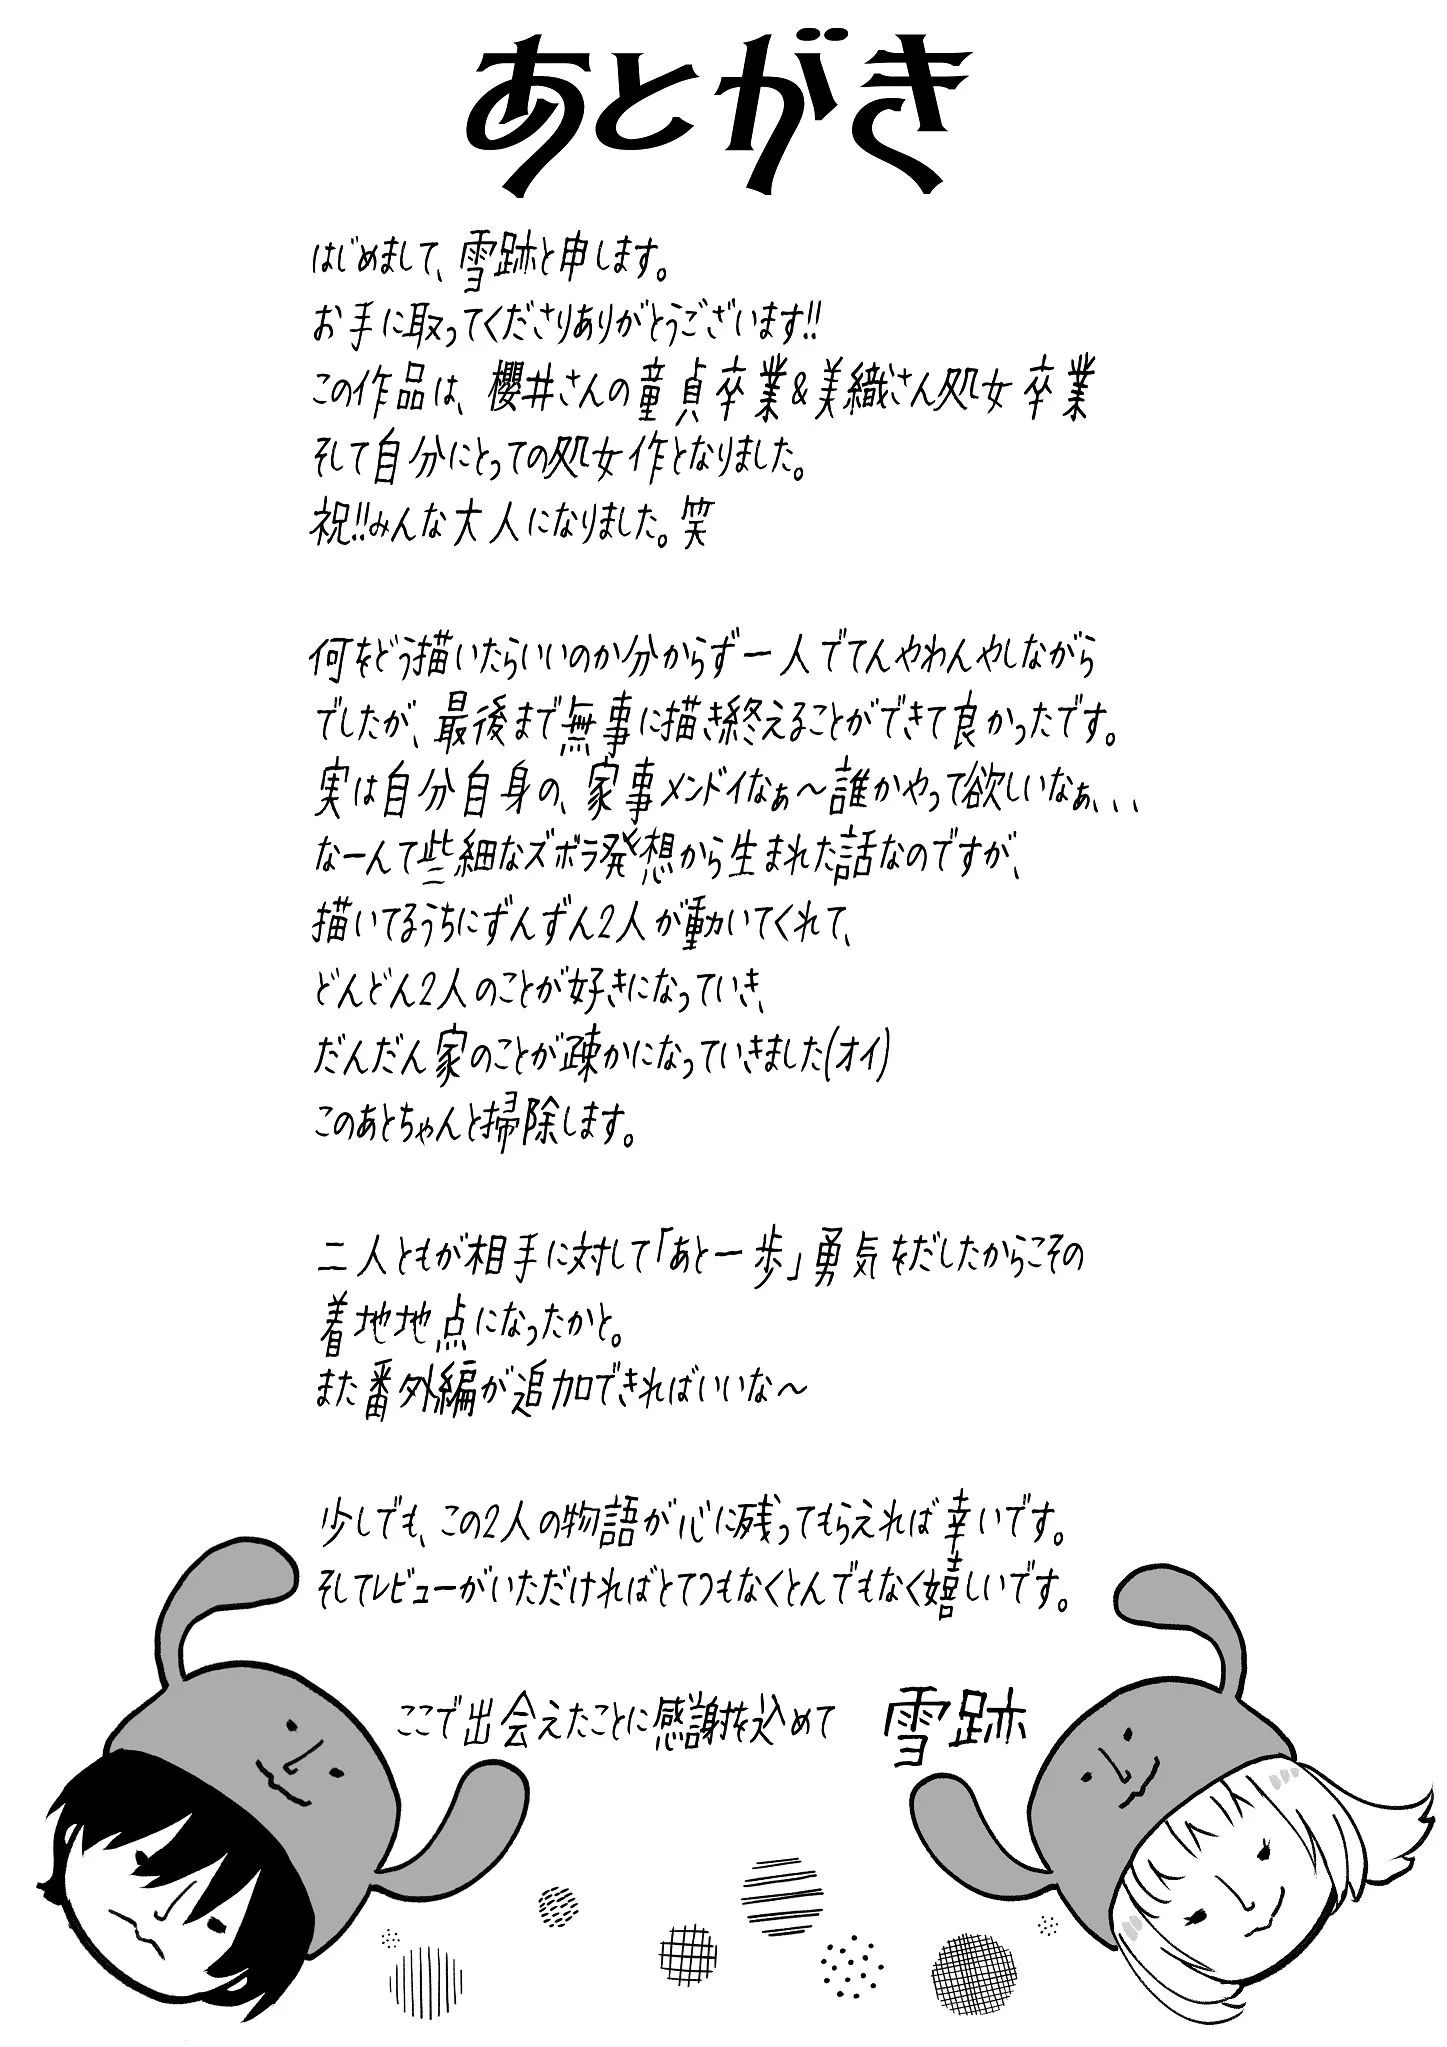 あとがき
はじめまして、雪跡と申します。
お手に取ってくださりありがとうございます!!
この作品は、櫻井さんの童貞卒業&美織さん処女卒業
そして自分にとっての処女作となりました。
祝!!みんな大人になりました。笑
何をどう描いたらいいのか分からず一人でてんやわんやしながら
でしたが、最後まで無事に描き終えることができて良かったです。
実は自分自身の、家事メンドイなぁ～誰かやって欲しいなぁ、、、
なーんて些細なズボラ発想から生まれた話なのですが、
描いてるうちにずんずん2人が動いてくれて、
どんどん2人のことが好きになっていき、
だんだん家のことが疎かになっていきました(オイ)
このあとちゃんと掃除します。
二人ともが相手に対して「あと一歩」勇気をだしたからこその
着地地点になったかと。
また番外編が追加できればいいな～
少しでも、この2人の物語が心に残ってもらえれば幸いです。
そしてレビューがいただければとてつもなくとんでもなく嬉しいです。
ここで出会えたことに感謝を込めて 雪跡